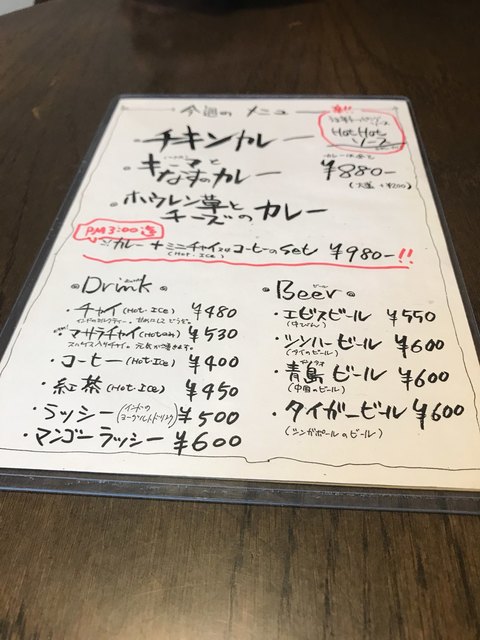 今週のメニュー
辛!!
HotHot
ソース
・チキンカレー
・キーマと
なすのカレー
カレー
¥880-
(大盛 +¥200)
・ホウレン草と
チーズのカレー
PM3:00迄
カレー + ミニチャイ又はコーヒーのSet ¥980-!!
(Hot・Ice)
Drink
・チャイ (Hot・Ice) ¥480
・マサラチャイ (Hotのみ) ¥530
スパイス入りチャイ。元気が
・コーヒー (Hot・Ice) ¥400
・紅茶 (Hot・Ice) ¥450
・ラッシー (インドのヨーグルトドリンク) ¥500
・マンゴーラッシー ¥600
Beer
ビール
・エビスビール ¥550
(中びん)
・シンハービール ¥600
(タイのビール)
チンタオ
・青島ビール ¥600
(中国のビール)
・タイガービール ¥600
(シンガポールのビール)